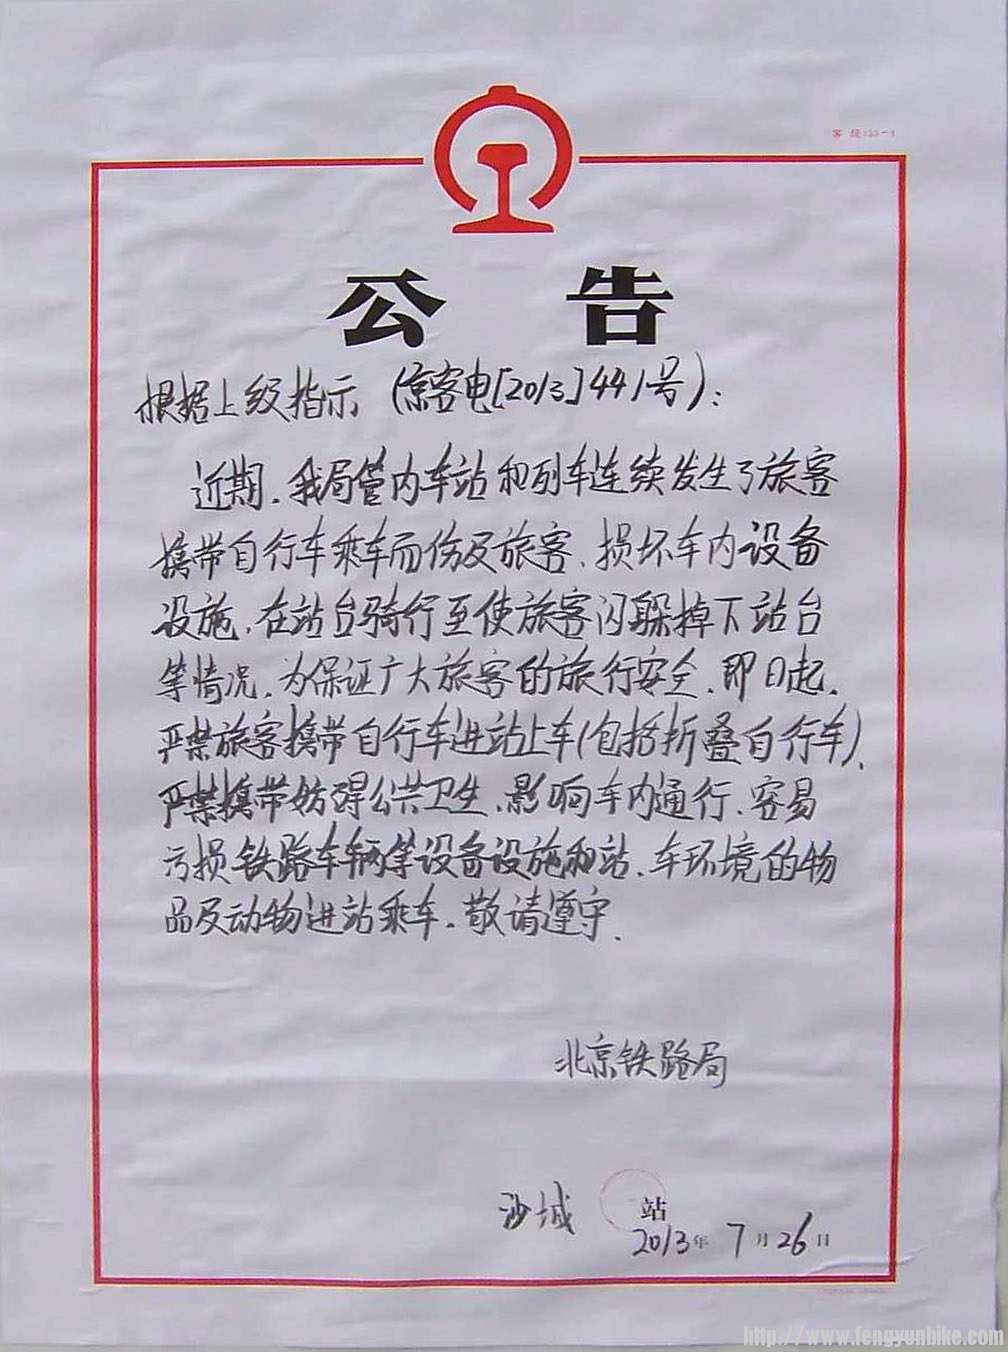 公告
根据上级指示(京客电[2013]441号):
近期,我局管内车站和列车连续发生了旅客
携带自行车乘车而伤及旅客、损坏车内设备
设施,在站台骑行至使旅客闪躲掉下站台
等情况,为保证广大旅客的旅行安全,即日起,
严禁旅客携带自行车进站上车(包括折叠自行车),
严禁携带妨碍公共卫生、影响车内通行、容易
污损铁路车辆等设备设施和站、车环境的物
品及动物进站乘车。敬请遵守.
北京铁路局
沙城 站
2013年7月26日
http://www.fengyunbike.com